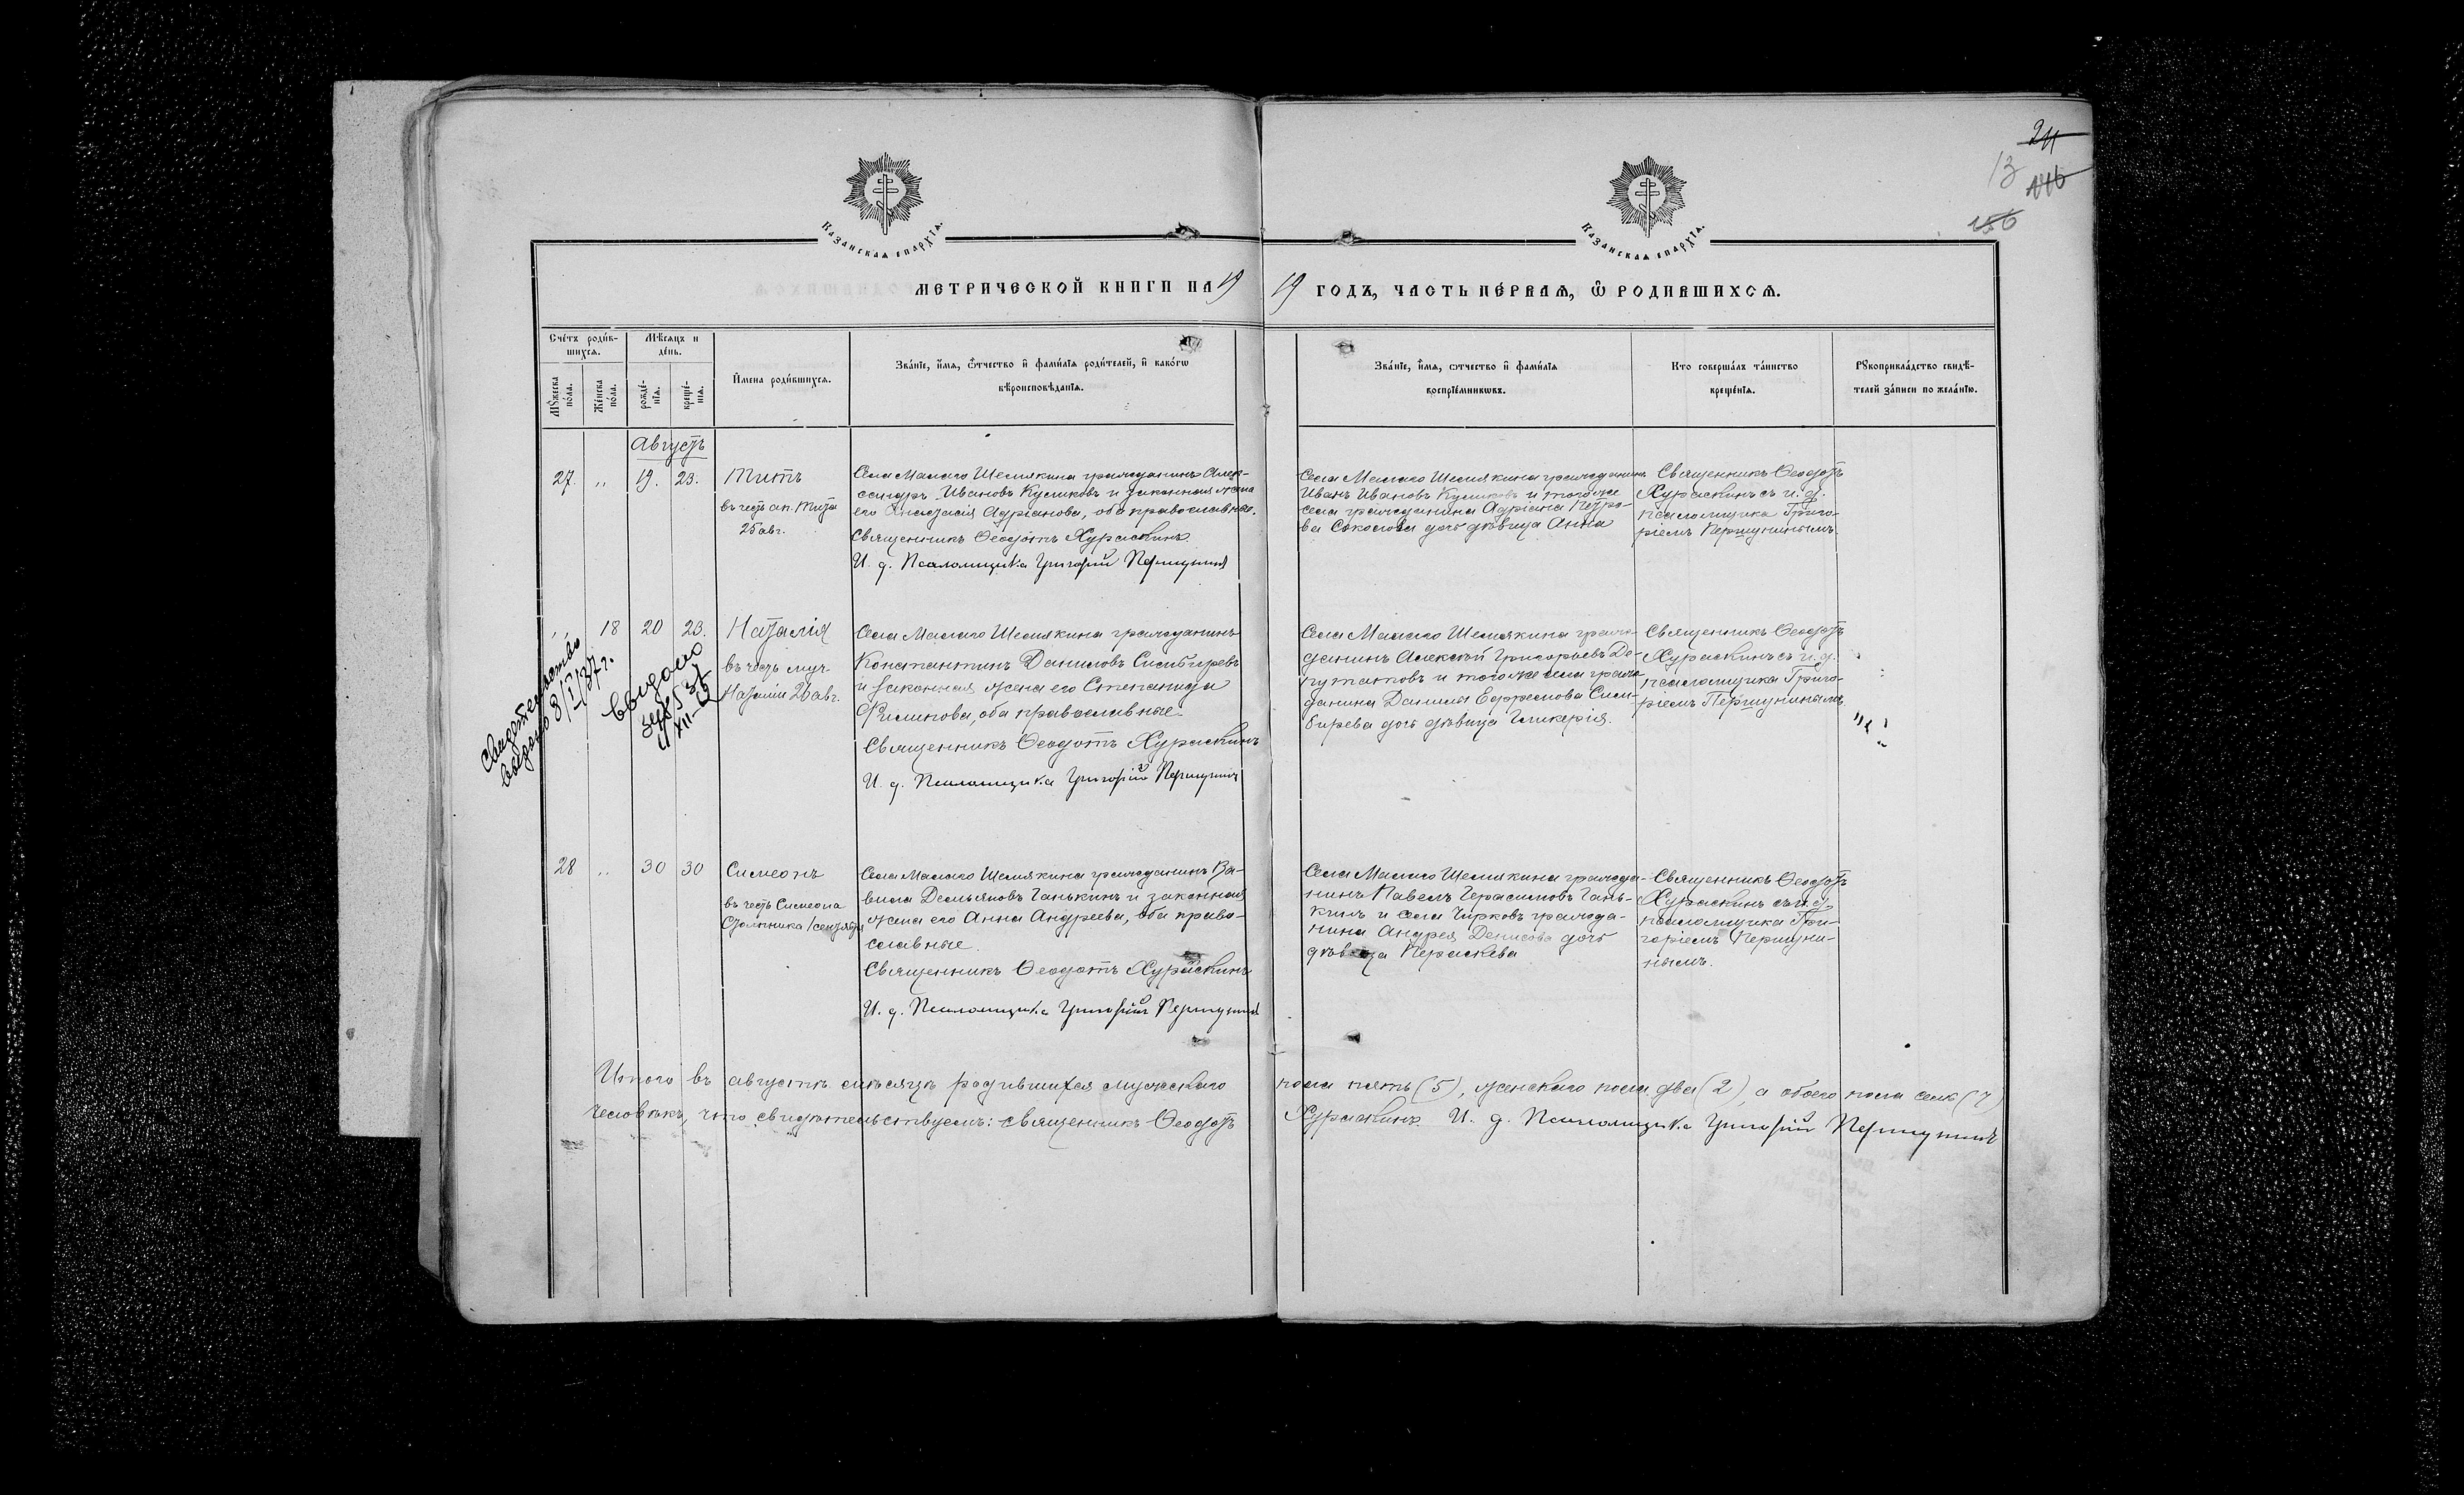 24
13
146
156
Казанская епархїѧ.
Казанская епархїѧ.
Метрической книги на 19
19 годъ, часть пе́рвая, ѡ҆ родившихсѧ.
Сче́тъ роди́в-
шихсѧ.
Мꙋ́жеска по́ла.
Же́нска по́ла.
Мѣ́сяцъ и
де́нь.
рожде́-
нїѧ.
креще́-
нїѧ.
И҆мена роди́вшихсѧ.
Зва́нїе, и҆́мѧ, ѻ҆́тчество и҆ фами́лїѧ роди́телей, и҆ како́гѡ
вѣроисповѣ́данїѧ.
Зва́нїе, и҆́мѧ, ѻ҆́тчество и҆ фами́лїѧ
воспрїе́мникѡвъ.
Кто соверша́лъ та́инство
креще́нїѧ.
Рꙋкоприкла́дство свидѣ́-
телей за́писи по жела́нїю.
Августъ
27. „ 19. 23.
Титъ
въ честь ап. Тита
25 авг.
Села Малаго Шемякина гражданинъ Алек-
сандръ Ивановъ Куликовъ и законная жена
его Анастасія Адріанова, оба православные.
Священникъ Ѳеодотъ Хураскинъ
И. д. Псаломщика Григорій Першунинъ
Села Малаго Шемякина гражданинъ
Иванъ Ивановъ Куликовъ и того же
села гражданина Адріана Петро-
ва Соколова дочь дѣвица Анна
Священникъ Ѳеодотъ
Хураскинъ съ и. д.
псаломщика Григо-
ріемъ Першунинымъ.
„ 18 20 23.
Наталія
въ честь муч.
Наталіи 26 авг.
Свидетельство
выдано 8/I/37 г.
выдано
Села Малаго Шемякина гражданинъ
Константинъ Даниловъ Симбиревъ
и законная жена его Степанида
Филипова, оба православные.
Священникъ Ѳеодотъ Хураскинъ
И. д. Псаломщика Григорій Першунинъ
Села Малаго Шемякина граж-
данинъ Алексѣй Григорьевъ Де-
путатовъ и того же села граж-
данина Данила Ефремова Сим-
бирева дочь дѣвица Гликерія.
Священникъ Ѳеодотъ
Хураскинъ съ и. д.
псаломщика Григо-
ріемъ Першунинымъ
28 „ 30 30
Симеонъ
въ честь Симеона
Столпника 1 сентября
Села Малаго Шемякина гражданинъ Ва-
вила Демьяновъ Ганькинъ и законная
жена его Анна Андреева, оба право-
славные.
Священникъ Ѳеодотъ Хураскинъ
И. д. Псаломщика Григорій Першунинъ
Села Малаго Шемякина гражда-
нинъ Павелъ Герасимовъ Гань-
кинъ и села Чирковъ гражда-
нина Андрея Денисова дочь
дѣвица Параскева
Священникъ Ѳеодотъ
Хураскинъ съ и. д.
псаломщика Гри-
горіемъ Першуни-
нымъ.
Итого въ августѣ мѣсяцѣ родившихся мужского пола пять (5), женского пола два (2), а обоего пола семь (7)
человѣкъ, что свидѣтельствуемъ: священникъ Ѳеодотъ Хураскинъ И. д. Псаломщика Григорій Першунинъ